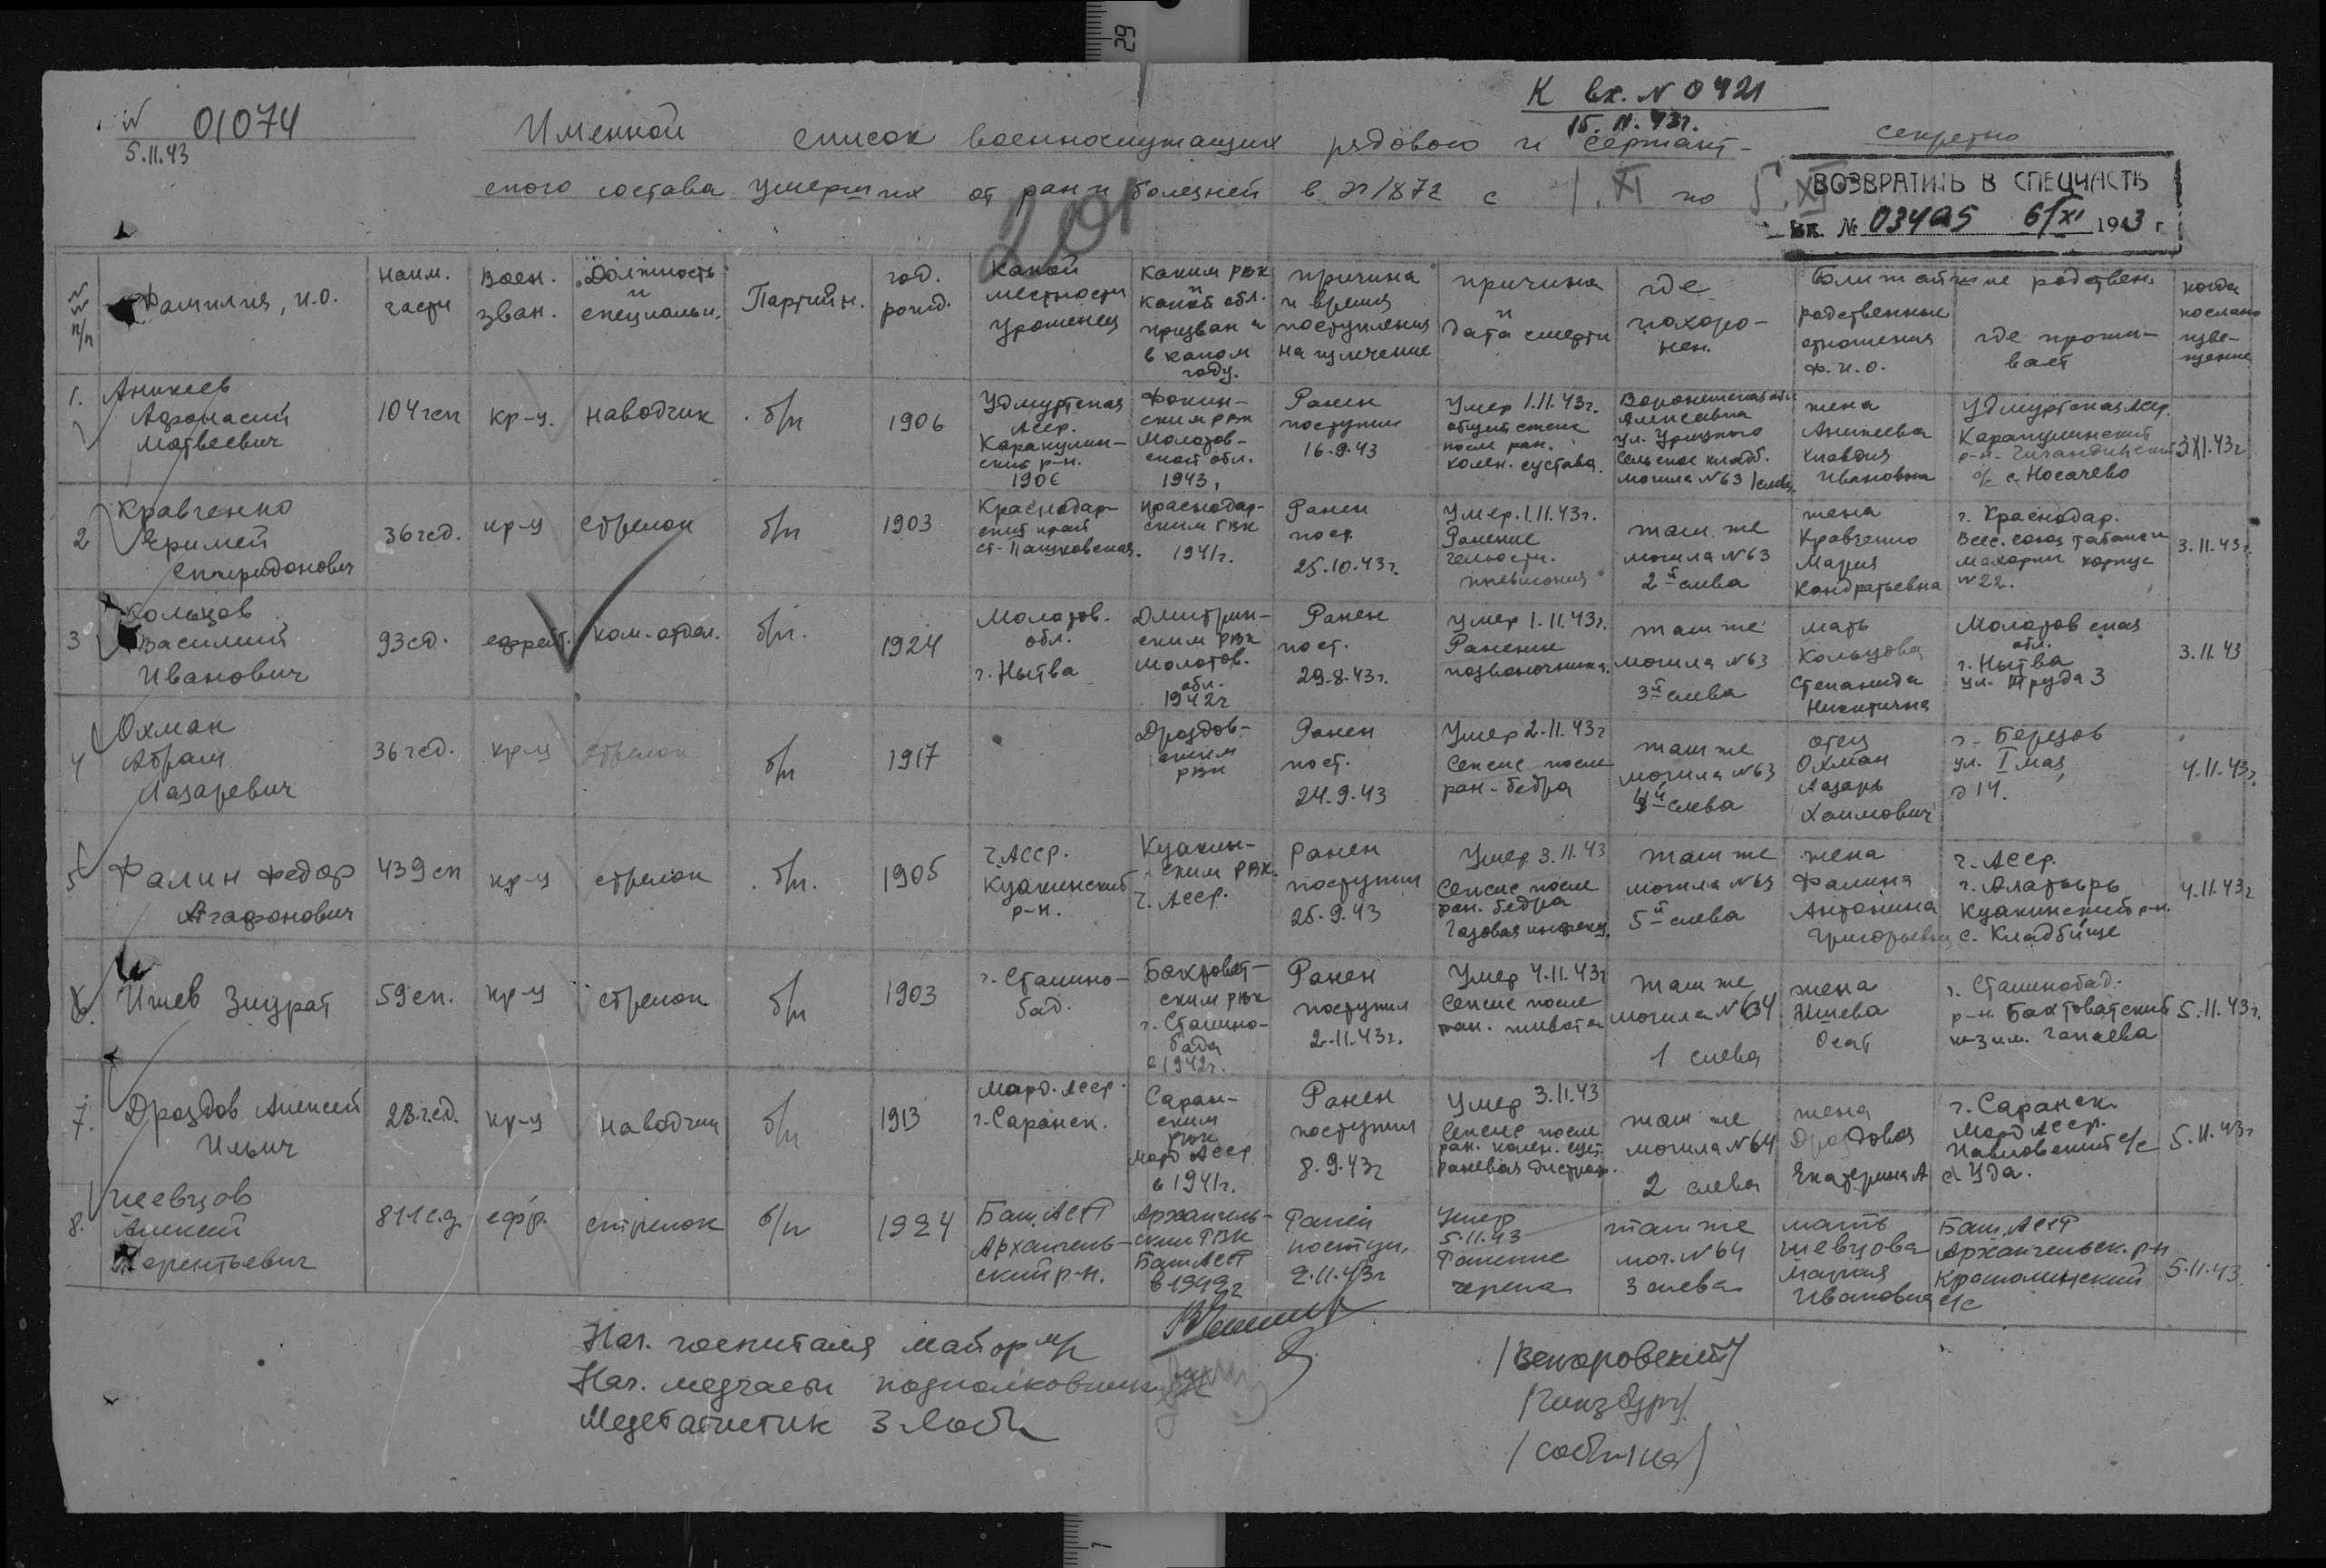 К вх. N 0921
15.11.43г.
N 01074
5.11.43
секретно
Именной список военнослужащих рядового и сержант-
ского состава умерших от ран и болезней в эг/1872 с 1.XI по 5.XI
201
ВОЗВРАТИТЬ В СПЕЦЧАСТЬ
вх. № 03405 6/XI 1943 г
NN п/п
Фамилия, И.О.
наим. части
воен. зван.
Должность и специальн.
Партийн.
год. рожд.
Какой местности уроженец
Каким РВК и какой обл. призван и в каком году.
причина и время поступления на излечение
причина и дата смерти
где похоро-
нен.
Ближайшие родствен.
родственные отношения ф.и.о.
где прожи-
вает
когда послано изве-
щение
1. Аникеев Афонасий Матвеевич
104 гсп
кр-ц
наводчик
б/п
1906
Удмуртская Асср. Каракулин-
ский р-н. 1906
Фокин-
ским РВК Молотов-
ской обл. 1943,
Ранен поступил 16.9.43
Умер 1.11.43г. общий сепсис после ран. колен. сустава.
Воронежская обл Алексеевка ул. Урицкого Сельское кладб. могила N63 1 слева
жена Аникеева Клавдия Ивановна
Удмуртская Асср. Каракулинский р-н. с/с с. Носачево
3.XI.43г
2 Кравченко Еримей Спиридонович
36 гсд.
кр-ц
стрелок
б/п
1903
Краснодар-
ский край ст. Пашковская.
Краснодар-
ским ГВК 1941г.
Ранен пост. 25.10.43г.
Умер. 1.11.43г. Ранение челюсти. пневмония
там же могила N63 2й слева
жена Кравченко Мария Кондратьевна
г. Краснодар. Всес. союз табака и махорки корпус N22.
3.11.43г.
3 Кольцов Василий Иванович
93 сд.
ефрейт.
ком. отдел.
б/п.
1924
Молотов. обл. г. Нытва
Дмитрин-
ским РВК Молотов. обл. 1942г
Ранен пост. 29.8.43г.
Умер 1.11.43г. Ранение позвоночника.
там же могила N63 3й слева
мать Кольцова Степанида Никитична
Молотовская обл. г. Нытва ул. Труда 3
3.11.43
4 Охман Абрам Лазаревич
36 гсд.
кр-ц
стрелок
б/п
1917
Дроздов-
ским РВК
Ранен пост. 24.9.43
Умер 2.11.43г Сепсис после ран. бедра
там же могила N63 4й слева
отец Охман Лазарь Хаимович
г. Березов ул. I мая, д 14.
4.11.43г.
5 Фалин Федор Агафонович
439 сп
кр-ц
стрелок
б/п.
1905
Ч. АССР. Куакинский р-н.
Куакин-
ским РВК. Ч. Асср.
Ранен поступил 25.9.43
Умер 3.11.43 Сепсис после ран. бедра Газовая инфекц.
там же могила N63 5й слева
жена Фалина Антонина Григорьевна
Ч. Асср. г. Алатырь Куакинский р-н. с. Кладбище
4.11.43г
6. Ишев Зиурат
59 сп.
кр-ц
стрелок
б/п
1903
г. Сталино-
бад.
Бахтоват-
ским РВК г. Сталино-
бада в 1942г.
Ранен поступил 2.11.43г.
Умер 4.11.43г Сепсис после ран. живота
там же могила N 64 1 слева
жена Ишева Осат
г. Сталинобад. р-н. Бахтоватский к-з им. Чапаева
5.11.43г.
7. Дроздов Алексей Ильич
28 гсд.
кр-ц
наводчик
б/п
1913
Морд. Асср. г. Саранск.
Саран-
ским РВК Морд Асср в 1941г.
Ранен поступил 8.9.43г
Умер 3.11.43 Сепсис после ран. колен. суст. раневая дистроф.
там же могила N64 2 слева
жена Дроздова Екатерина А
г. Саранск. Морд Асср. Павловский с/с с. Уда.
5.11.43г
8. Шевцов Алексей Терентьевич
811 с.д.
ефр.
стрелок
б/п
1924
Баш. АССР Архангель-
ский р-н.
Архангель-
ским РВК Баш АССР в 1942г
Ранен поступ. 2.11.43г
Умер 5.11.43 Ранение черепа
там же мог. N64 3 слева
мать Шевцова Мария Ивановна
Баш. АССР Архангельск. р-н с/с
5.11.43.
Нач. госпиталя майор м/с
Нач. медчасти подполковник м/с /Гинзбург/
Медстатистик
29
1